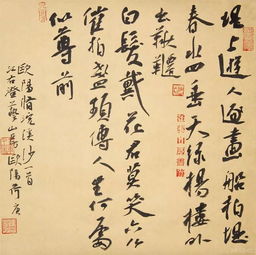 堤上遊人逐畫船拍堤
春水四垂天綠楊樓外
出鞦韆
白髮戴花君莫笑六幺
催拍盞頻傳人生何處
似尊前
歐陽脩浣溪沙一首